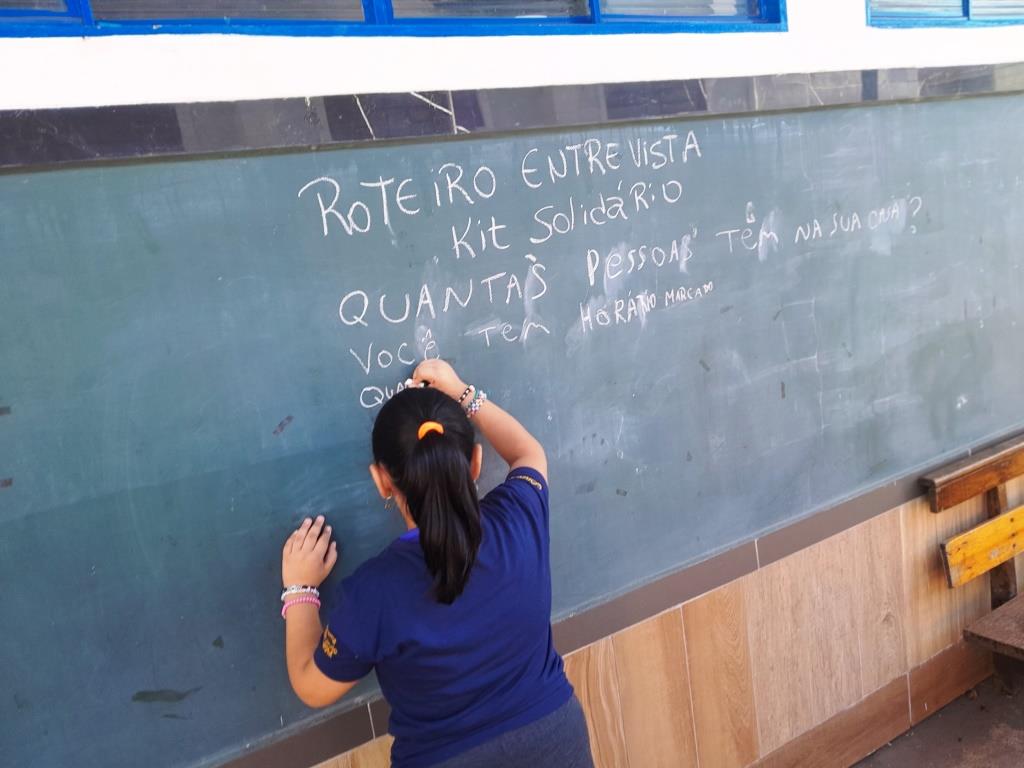 ROTEIRO ENTREVISTA
Kit SOlidáRiO
QUANTAS PESSOAS TÊM NA SUA
VOCÊ TEM HORÁRIO MARCADO